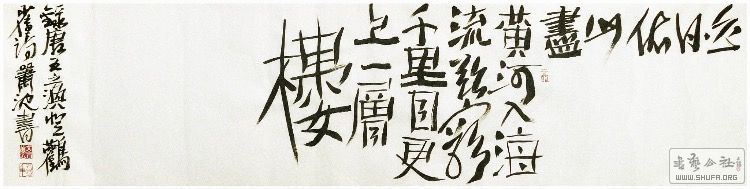 白日依山盡
黃河入海
流欲窮
千里目更
上一層
樓
錄唐王之渙登鸛
雀詩書
書藝公社
WWW.SHUFA.ORG